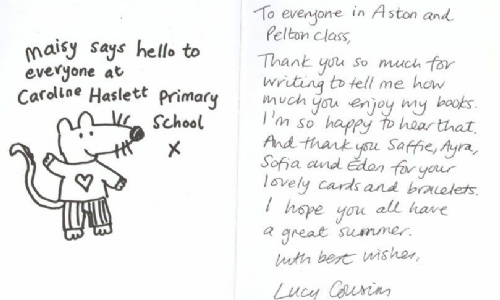 Maisy says hello to
everyone at
Caroline Haslett Primary
School
x
To everyone in Aston and
Pelton class,
Thank you so much for
writing to tell me how
much you enjoy my books.
I'm so happy to hear that.
And thank you Saffie, Ayra,
Sofia and Eden for your
lovely cards and bracelets.
I hope you all have
a great summer.
With best wishes,
Lucy Cousins